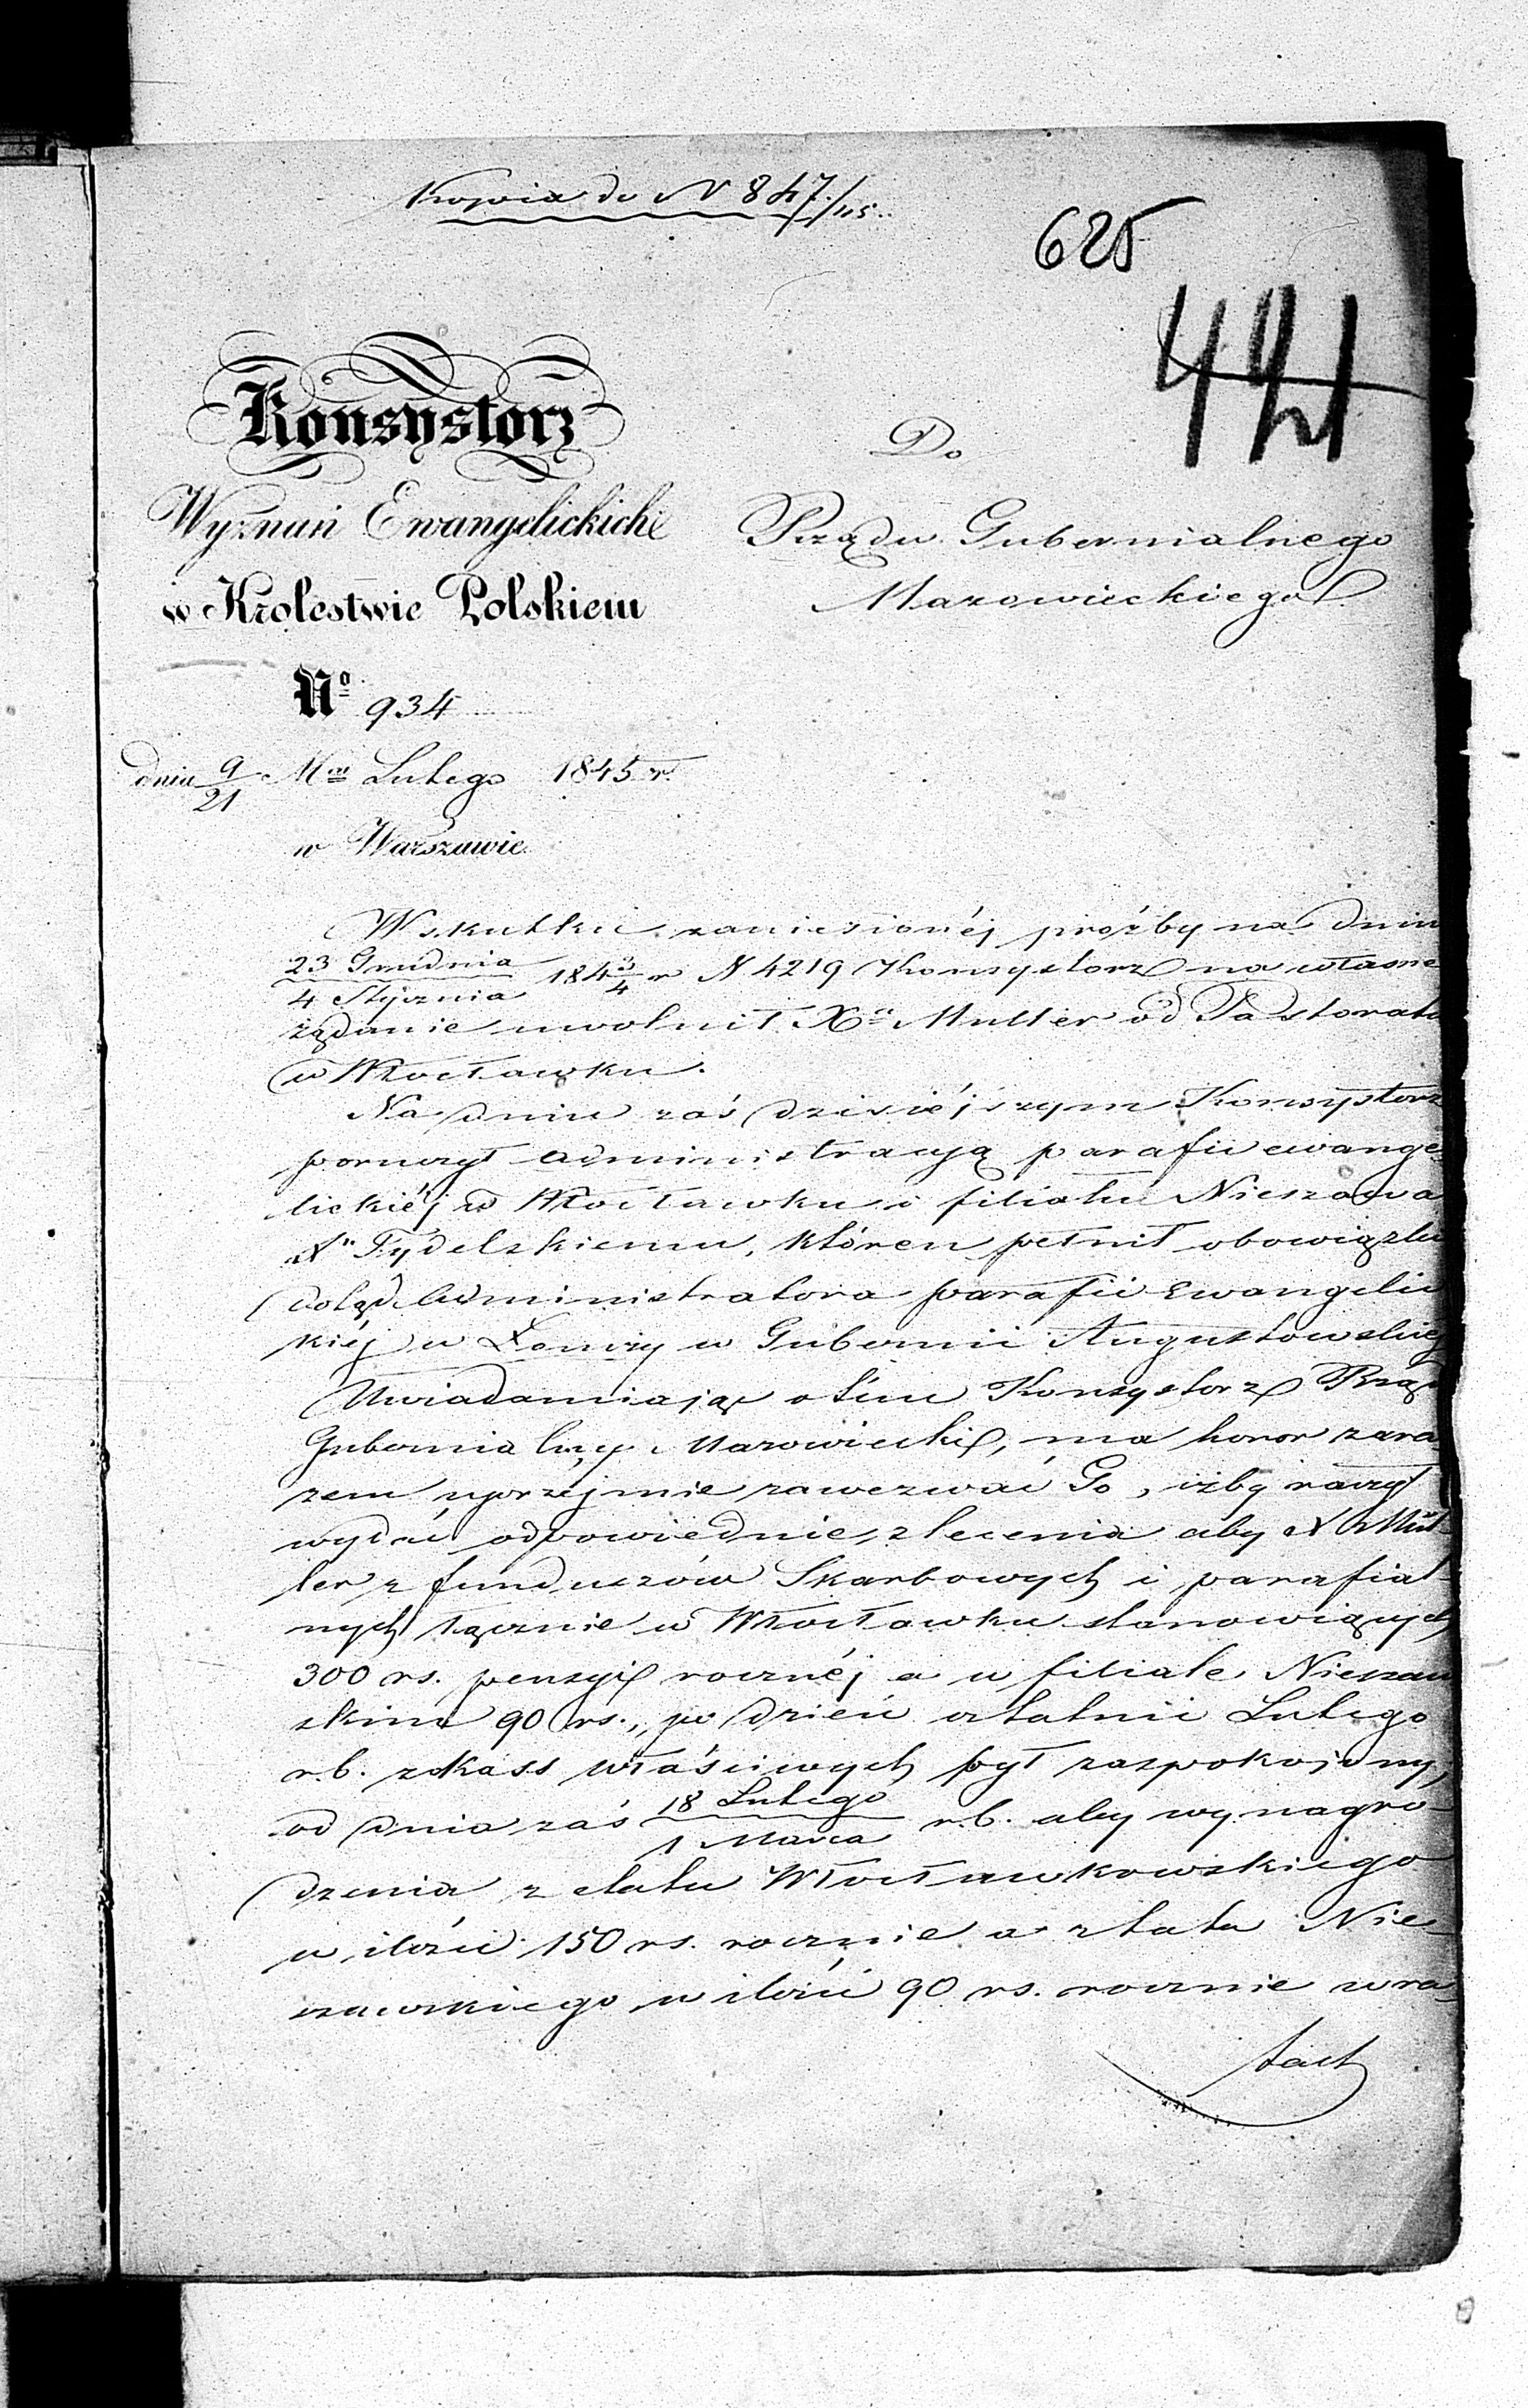 Kopia do N 847/45.
625
421
Konsystorz
Wyznań Ewangelickich
w Krolestwie Polskiem
Nº 934
dnia 9/21 Mca Lutego 1845 r.
w Warszawie
Do
Rządu Gubernialnego
Mazowieckiego
W skutku zaniesionéj prośby na dniu
23 Grudnia / 4 Stycznia 184 3/4 r N 4219 Konsystorz na własne
żądanie uwolnił Xa Muller od Pastoratu
w Włocławku.
Na dniu zaś dzisiéjszym Konsystorz
poruczył administracyą parafii ewange-
lickiéj w Włocławku i filiału Nieszawa
Xu Tydelskiemu, któren pełnił obowiązki
dotąd Administratora parafii Ewangelic
kiéj w Łomży w Gubernii Augustowskiéj
Uwiadamiając o tém Konsystorz Rząd
Gubernialny Mazowiecki, ma honor zara
zem uprzejmie zawezwać Go, iżby raczył
wydać odpowiednie zlecenia aby X Mül-
ler z funduszów Skarbowych i parafial-
nych łącznie w Włocławku stanowiących
300 rs. pensyi rocznéj a w filiale Nieszaw
skim 90 rs., po dzień ostatni Lutego
r.b. z kass właściwych był zaspokojony,
od dnia zaś 18 Lutego / 1 Marca r.b. aby wynagro-
dzenia z etatu Włocławkowskiego
w ilości 150 rs. rocznie a z tatu Nie-
szawskiego w ilości 90 rs. rocznie w ra-
tach